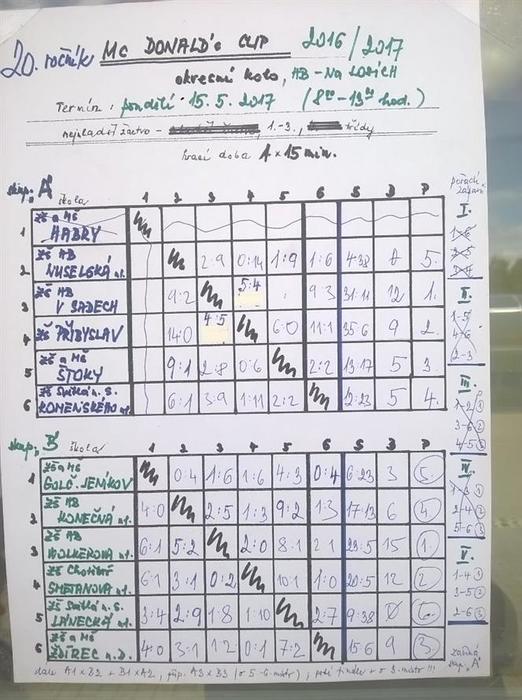 20. ročník MC DONALD'S CUP 2016/2017
okresní kolo, HB - Na Losích
Termín: pondělí 15.5.2017 (8⁰⁰-13⁰⁰ hod.)
nejmladší žactvo - 1.-3. třídy
hrací doba 1x15 min.
skup. A škola 1 2 3 4 5 6 S B P
1 ZŠ a MŠ HABRY
2 ZŠ HB NUSELSKÁ ul. 2:9 0:14 1:9 1:6 4:38 0 5.
3 ZŠ HB V SADECH 9:2 5:4 9:3 31:11 12 1.
4 ZŠ PŘIBYSLAV 14:0 4:5 6:0 11:1 35:6 9 2.
5 ZŠ a MŠ ŠTOKY 9:1 2:8 0:6 2:2 13:17 5 3.
6 ZŠ Světlá n.S. KOMENSKÉHO ul. 6:1 3:9 1:11 2:2 5 4.
pořadí zápasů
I.
II.
1-5
4-6
2-3
III.
1-2
3-6
4-5
skup. B škola 1 2 3 4 5 6 S B P
1 ZŠ a MŠ GOLČ. JENÍKOV 0:4 1:6 1:6 4:3 0:4 6:23 3 5.
2 ZŠ HB KONEČNÁ ul. 4:0 2:5 1:3 9:2 1:3 17:13 6 4.
3 ZŠ HB WOLKEROVA ul. 6:1 5:2 2:0 8:1 2:1 23:5 15 1.
4 ZŠ Chotěboř SMETANOVA ul. 6:1 3:1 0:2 10:1 1:0 20:5 12 2.
5 ZŠ Světlá n.S. LÁNECKÁ ul. 3:4 2:9 1:8 1:10 2:7 9:38 0 6.
6 ZŠ a MŠ ŽDÍREC n.D. 4:0 3:1 1:2 0:1 7:2 15:6 9 3.
IV.
1-3
2-4
5-6
V.
1-4
3-5
2-6
začíná skup. A
dále A1 x B2 + B1 x A2, příp. A3 x B3 (o 5-6.místo), poté finále + o 3.místo !!!